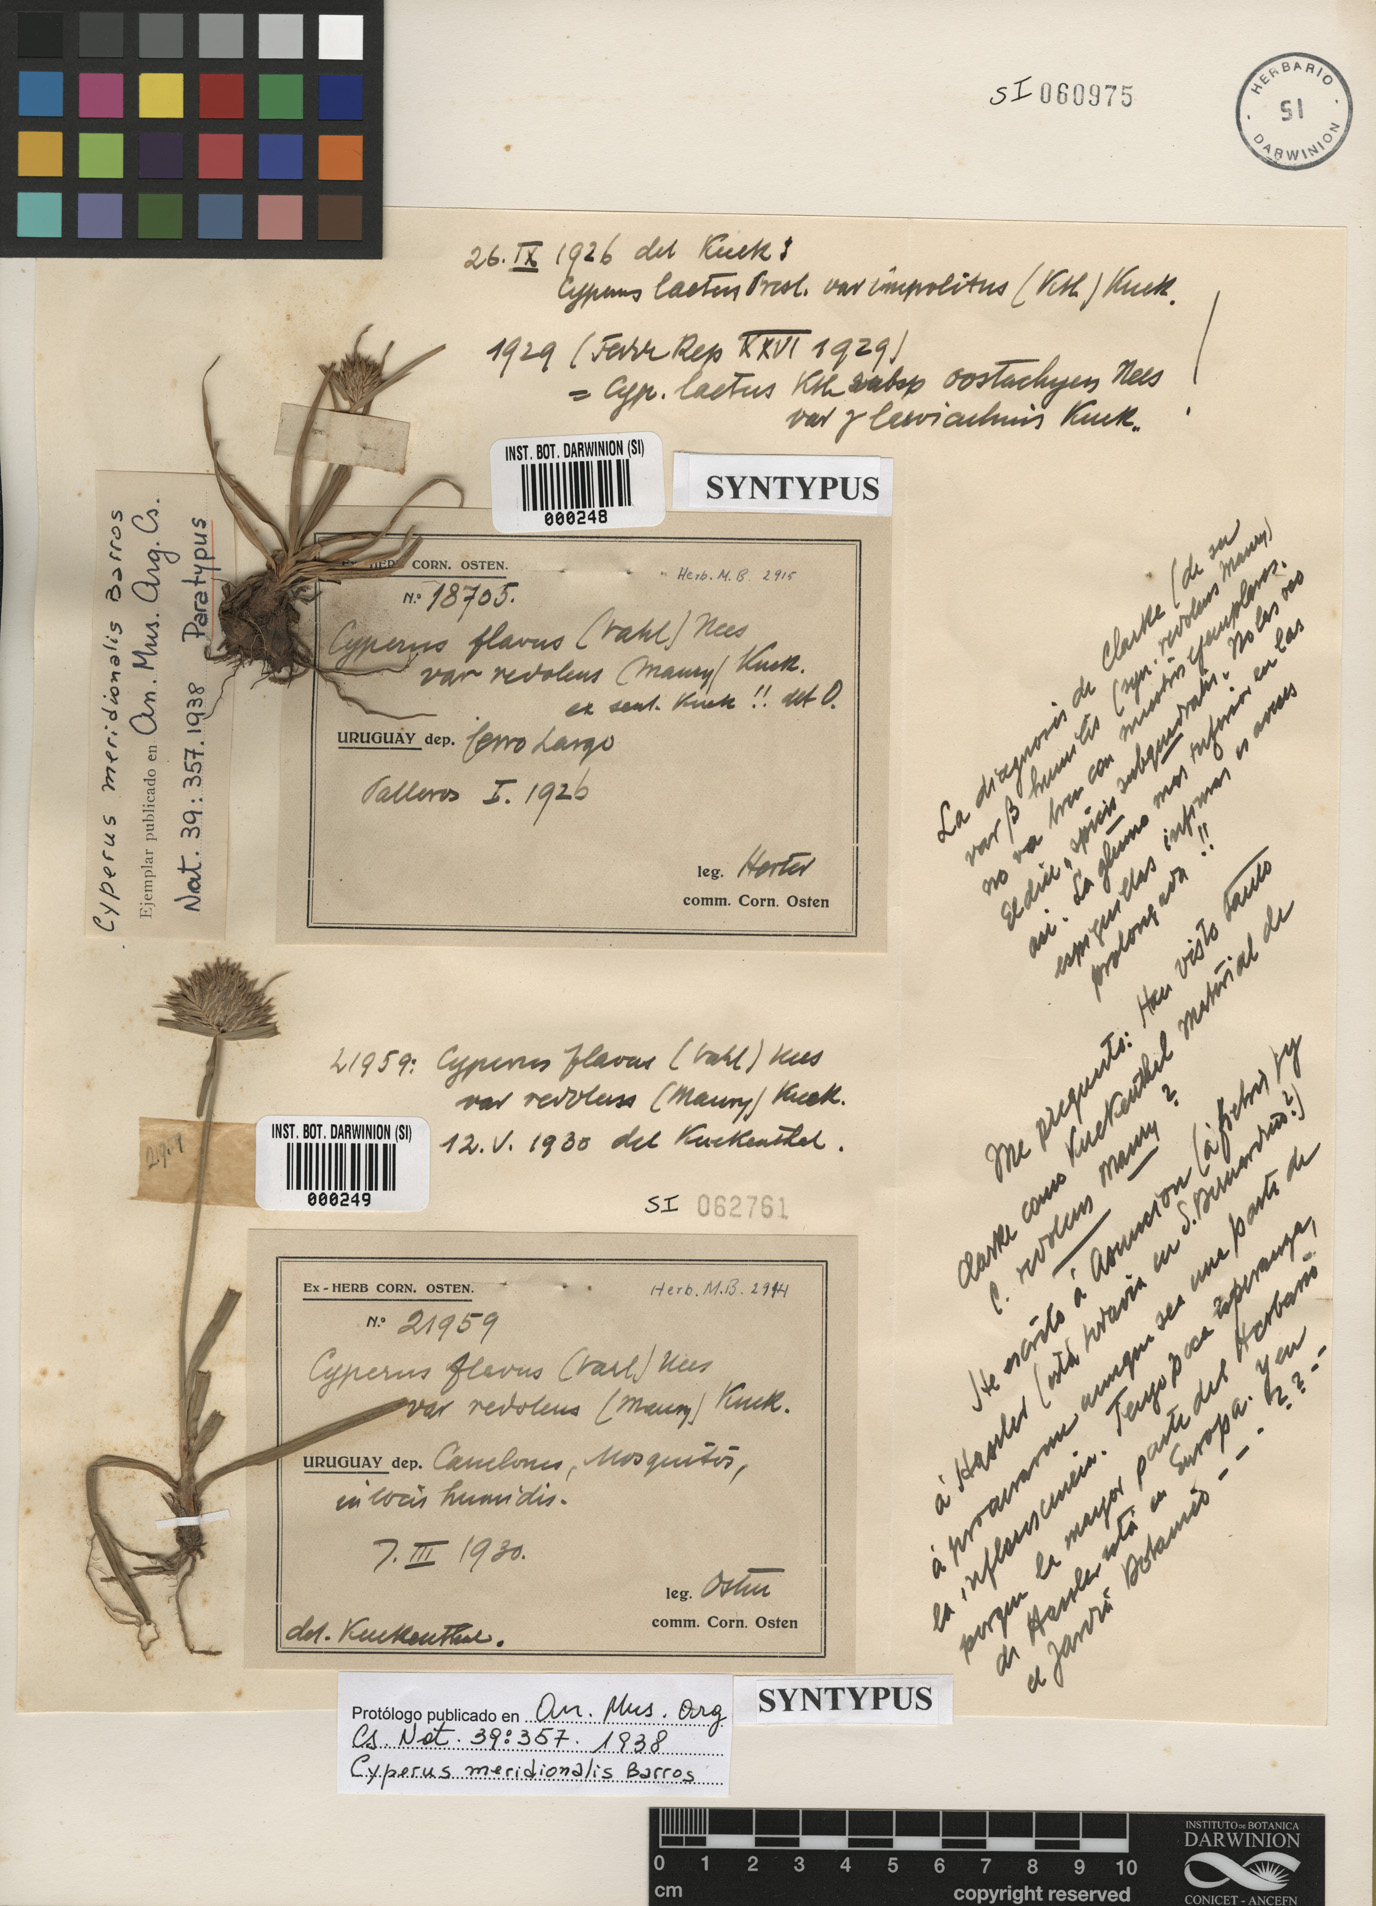 SI 060975
HERBARIO
SI
DARWINION
26. IX 1926 det Kuek:
Cyperus laetus Presl. var impolitus (Kth) Kuek.
1929 (Fedde Rep XXVI 1929)
= Cyp. laetus Kth subsp oostachyus Nees
var γ laeviculmis Kuek.
INST. BOT. DARWINION (SI)
000248
SYNTYPUS
Cyperus meridionalis Barros
Ejemplar publicado en An. Mus. Arg. Cs.
Nat. 39: 357. 1938 Paratypus
Ex-HERB. CORN. OSTEN.
Herb. M.B. 2915
N.º 18705.
Cyperus flavus (Vahl) Nees
var redolens (Maury) Kuek.
ex sent. Kuek !! det O.
URUGUAY dep. Cerro Largo
Palleros I. 1926
leg. Herter
comm. Corn. Osten
La diagnosis de Clarke (de su
var β humilis (syn. redolens Maury)
no va bien con nuestros ejemplares.
El dice "spicis subquadratis. No las veo
asi. La gluma mas inferior en las
espiguillas infimas es a veces
prolongada !!
Me pregunto: Han visto tanto
Clarke como Kuckenthal material de
C. redolens Maury?
He escrito á Asuncion (á Fiebrig) y
á Hassler (está todavia en S. Bernardino?)
á procurarme aunque sea una parte de
la inflorescencia. Tengo poca esperanza,
porque la mayor parte del Herbario
de Hassler está en Europa. Y en
el Jardin Botanico - - - ? ? - -
21959: Cyperus flavus (Vahl) Nees
var redolens (Maury) Kuek.
12. V. 1930 det Kuckenthal.
INST. BOT. DARWINION (SI)
000249
SI 062761
Ex-HERB CORN. OSTEN.
Herb. M.B. 2914
N.º 21959
Cyperus flavus (Vahl) Nees
var redolens (Maury) Kuek.
URUGUAY dep. Canelones, Mosquitos,
in locis humidis.
7. III 1930.
leg. Osten
comm. Corn. Osten
det. Kuckenthal.
SYNTYPUS
Protólogo publicado en An. Mus. Arg
Cs. Nat. 39: 357. 1938
Cyperus meridionalis Barros
0 1 2 3 4 5 6 7 8 9 10
cm
copyright reserved
INSTITUTO DE BOTANICA
DARWINION
CONICET - ANCEFN